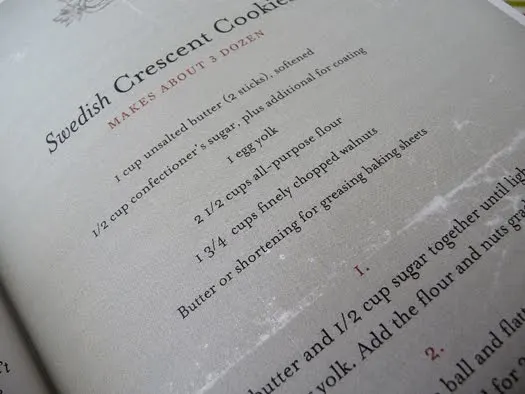 Swedish Crescent Cookies
MAKES ABOUT 3 DOZEN
1 cup unsalted butter (2 sticks), softened
1/2 cup confectioner's sugar, plus additional for coating
1 egg yolk
2 1/2 cups all-purpose flour
1 3/4 cups finely chopped walnuts
Butter or shortening for greasing baking sheets
1.
butter and 1/2 cup sugar together until
yolk. Add the flour and nuts
2.
ball and
for